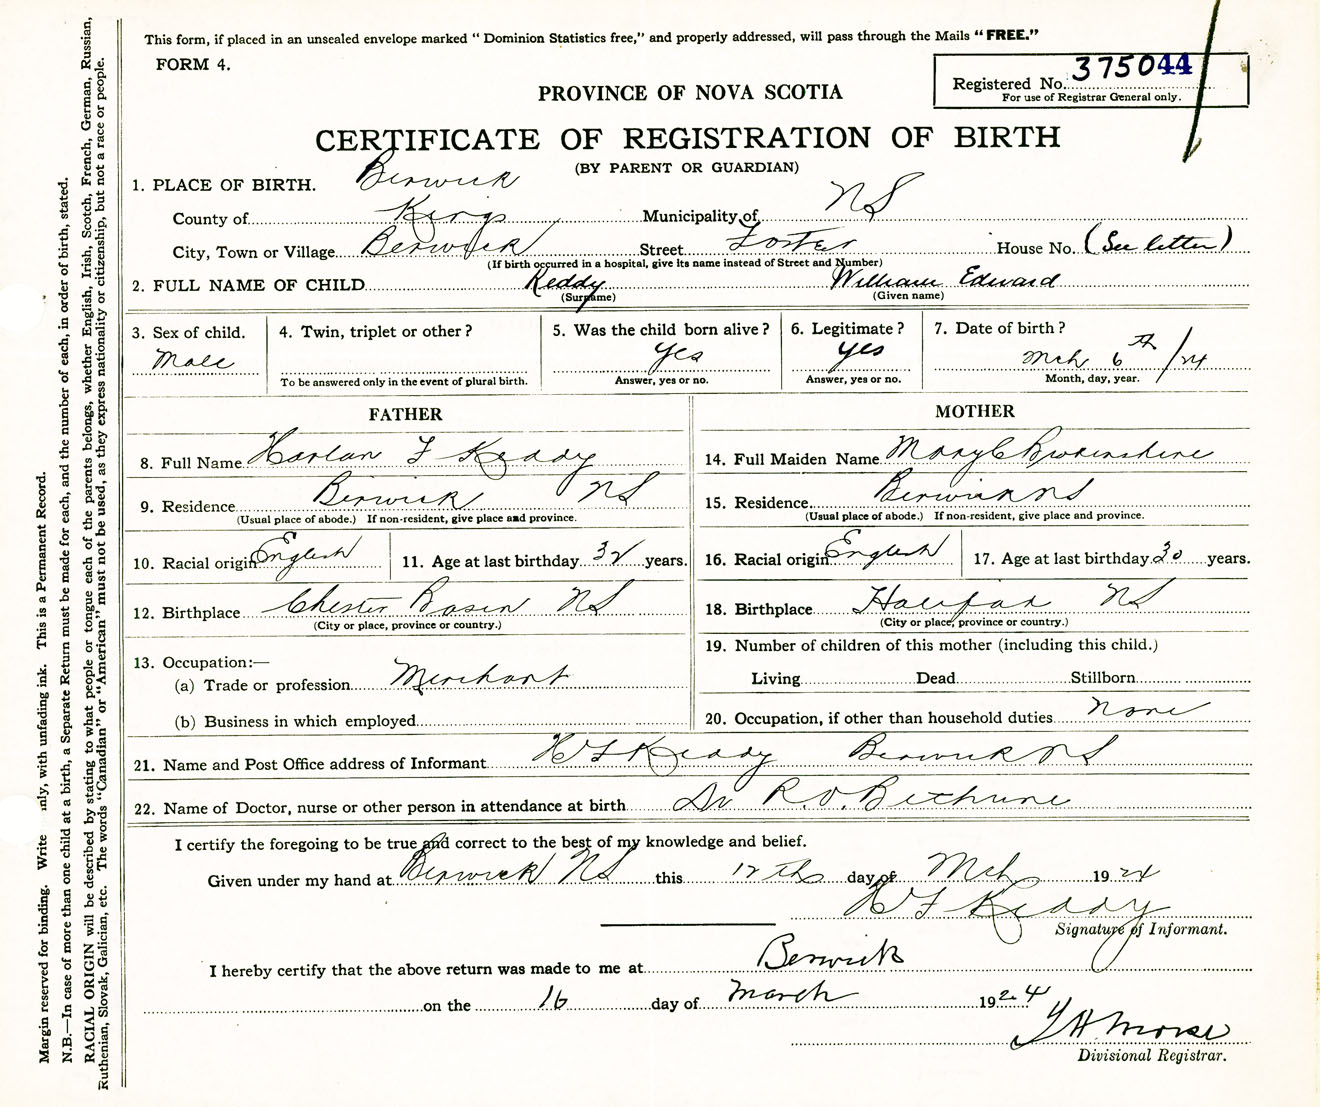 This form, if placed in an unsealed envelope marked " Dominion Statistics free," and properly addressed, will pass through the Mails "FREE."
FORM 4.
Registered No. 375044
For use of Registrar General only.
PROVINCE OF NOVA SCOTIA
CERTIFICATE OF REGISTRATION OF BIRTH
(BY PARENT OR GUARDIAN)
1. PLACE OF BIRTH. Berwick
County of Kings Municipality of NS
City, Town or Village Berwick Street Foster House No. (See letter)
(If birth occurred in a hospital, give its name instead of Street and Number)
2. FULL NAME OF CHILD Keddy William Edward
(Surname) (Given name)
3. Sex of child. 4. Twin, triplet or other? 5. Was the child born alive? 6. Legitimate? 7. Date of birth?
Male yes yes Mch 6th/24
To be answered only in the event of plural birth. Answer, yes or no. Answer, yes or no. Month, day, year.
FATHER MOTHER
8. Full Name Harlan F Keddy 14. Full Maiden Name Mary C
9. Residence Berwick NS 15. Residence Berwick NS
(Usual place of abode.) If non-resident, give place and province. (Usual place of abode.) If non-resident, give place and province.
10. Racial origin English 11. Age at last birthday 32 years. 16. Racial origin English 17. Age at last birthday 30 years.
12. Birthplace Chester Basin NS 18. Birthplace Halifax NS
(City or place, province or country.) (City or place, province or country.)
13. Occupation:— 19. Number of children of this mother (including this child.)
(a) Trade or profession Merchant Living Dead Stillborn
(b) Business in which employed 20. Occupation, if other than household duties none
21. Name and Post Office address of Informant H F Keddy Berwick NS
22. Name of Doctor, nurse or other person in attendance at birth Dr R. O. Bethune
I certify the foregoing to be true and correct to the best of my knowledge and belief.
Given under my hand at Berwick NS this 12th day of Mch 1924
H F Keddy
Signature of Informant.
I hereby certify that the above return was made to me at Berwick
on the 16 day of March 1924
Morse
Divisional Registrar.
Margin reserved for binding. Write nly, with unfading ink. This is a Permanent Record.
N.B.—In case of more than one child at a birth, a Separate Return must be made for each, and the number of each, in order of birth, stated.
RACIAL ORIGIN will be described by stating to what people or tongue each of the parents belongs, whether English, Irish, Scotch, French, German, Russian,
Ruthenian, Slovak, Galician, etc. The words "Canadian" or "American" must not be used, as they express nationality or citizenship, but not a race or people.